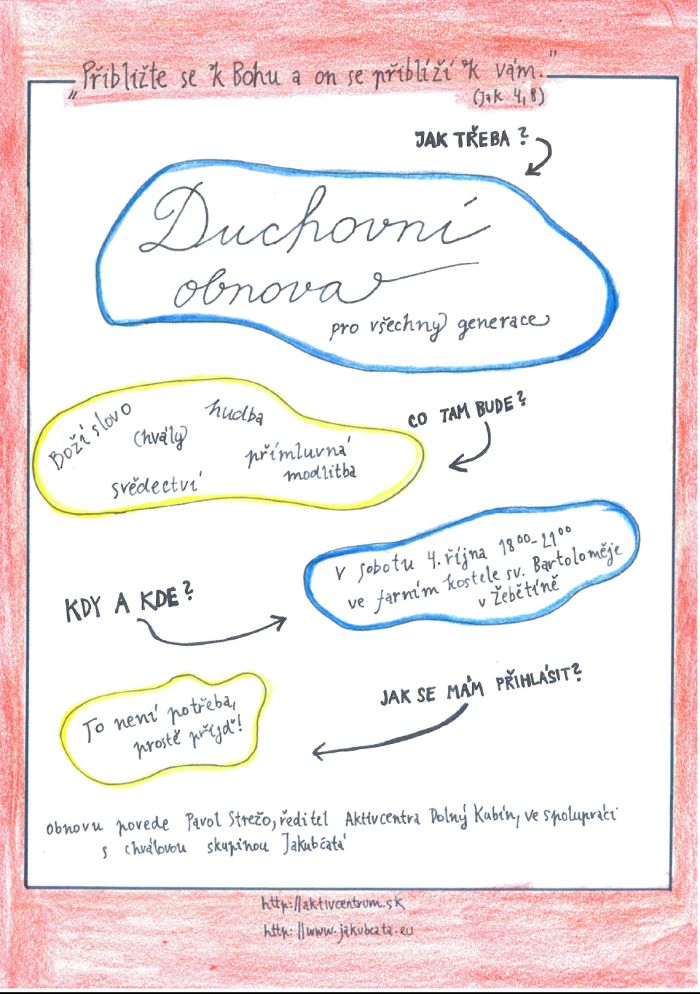 „Přibližte se k Bohu a on se přiblíží k vám.“
(Jak 4,8)
JAK TŘEBA?
Duchovní
obnova
pro všechny generace
CO TAM BUDE?
Boží slovo
chvály
hudba
svědectví
přímluvná
modlitba
KDY A KDE?
v sobotu 4. října 18⁰⁰-21⁰⁰
ve farním kostele sv. Bartoloměje
v Žebětíně
JAK SE MÁM PŘIHLÁSIT?
To není potřeba,
prostě přijď!
obnovu povede Pavol Strežo, ředitel Aktivcentra Dolný Kubín, ve spolupráci
s chválovou skupinou Jakubčata
http://aktivcentrum.sk
http://www.jakubcata.eu